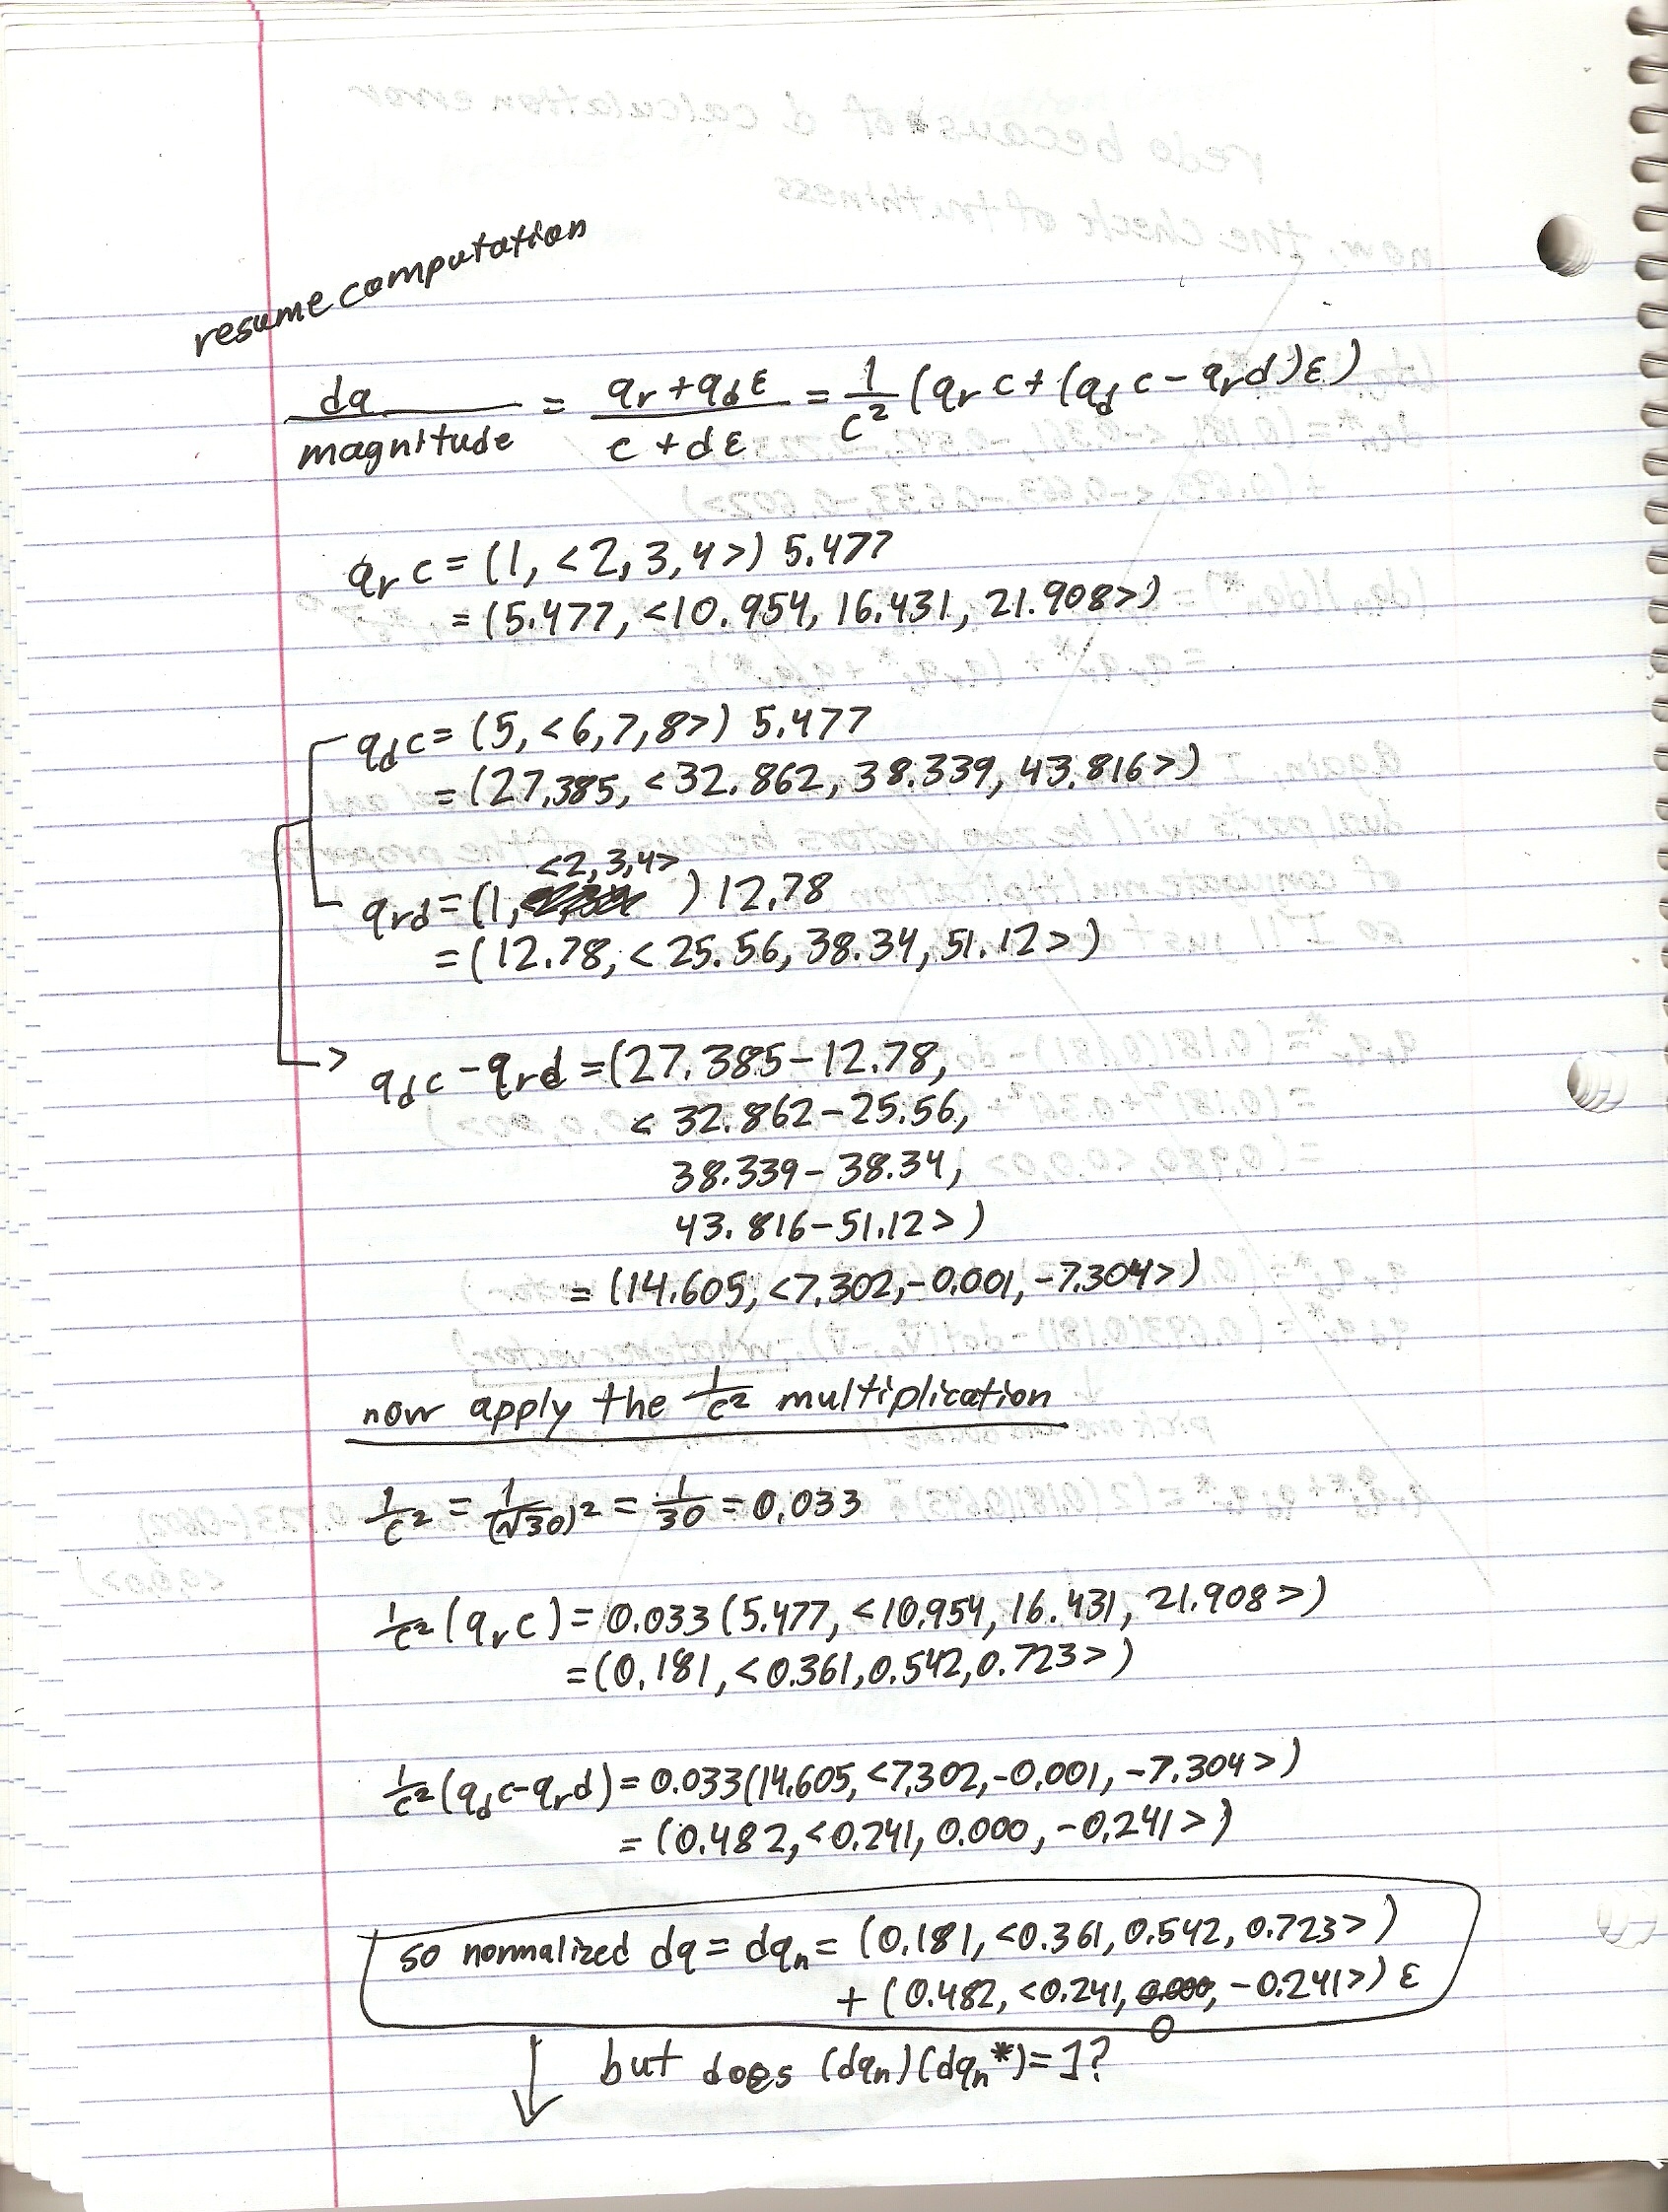 resume computation
dq/magnitude = (qr + qdε)/(c + dε) = 1/c² (qr c + (qd c - qr d)ε)
qr c = (1, <2, 3, 4>) 5.477
= (5.477, <10.954, 16.431, 21.908>)
qd c = (5, <6, 7, 8>) 5.477
= (27.385, <32.862, 38.339, 43.816>)
<2, 3, 4>
qrd = (1, ) 12.78
= (12.78, <25.56, 38.34, 51.12>)
qdc - qrd = (27.385 - 12.78,
< 32.862 - 25.56,
38.339 - 38.34,
43.816 - 51.12>)
= (14.605, <7.302, -0.001, -7.304>)
now apply the 1/c² multiplication
1/c² = 1/(√30)² = 1/30 = 0.033
1/c² (qr c) = 0.033 (5.477, <10.954, 16.431, 21.908>)
= (0.181, <0.361, 0.542, 0.723>)
1/c² (qd c - qr d) = 0.033 (14.605, <7.302, -0.001, -7.304>)
= (0.482, <0.241, 0.000, -0.241>)
so normalized dq = dqn = (0.181, <0.361, 0.542, 0.723>)
+ (0.482, <0.241, 0.000, -0.241>) ε
0
but does (dqn)(dqn*) = 1?